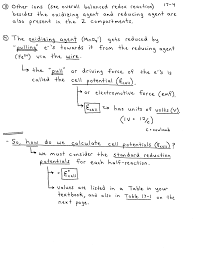 17-4
③ Other ions (see overall balanced redox reaction)
besides the oxidizing agent and reducing agent are
also present in the 2 compartments.
④ The oxidizing agent (MnO₄⁻) gets reduced by
"pulling" e⁻s towards it from the reducing agent
(Fe²⁺) via the wire.
↳ the "pull" or driving force of the e⁻s is
called the cell potential (Ecell),
↳ or electromotive force (emf).
↳ Ecell has units of volts (V)
(1V = 1J/C)
C = coulomb
- So, how do we calculate cell potentials (Ecell)?
↳ we must consider the standard reduction
potentials for each half-reaction.
↳ = E°cell
↳ values are listed in a Table in your
textbook, and also in Table 17-1 on the
next page.